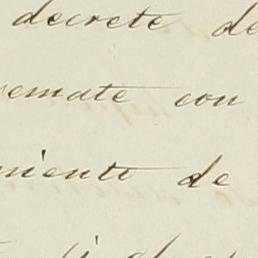 decrete de
remate con
niente de